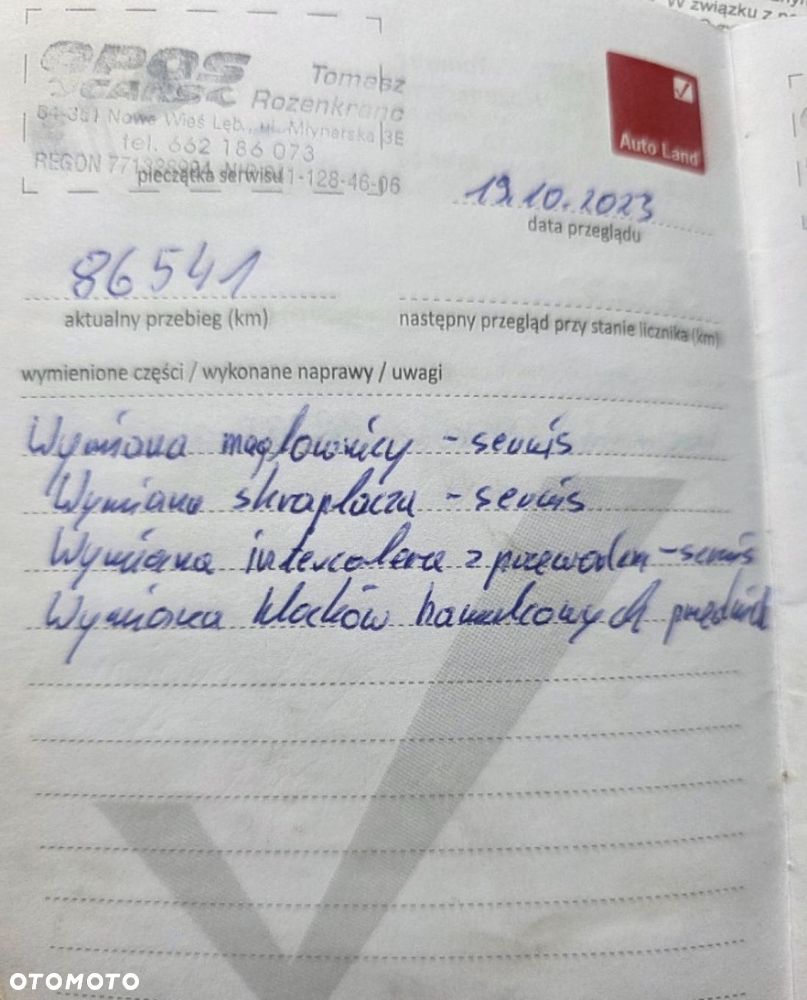 W związku z
OPAS
CARSC
Tomasz
Rozenkranc
84-351 Nowa Wieś Lęb., ul. Młynarska 3E
tel. 662 186 073
REGON
pieczątka serwisu
1-128-46-06
Auto Land
19.10.2023
data przeglądu
86541
aktualny przebieg (km)
następny przegląd przy stanie licznika (km)
wymienione części / wykonane naprawy / uwagi
Wymiana maglownicy - serwis
Wymiana skraplacza - serwis
Wymiana intercolera z przewodem - serwis
Wymiana klocków hamulcowych przednich
OTOMOTO